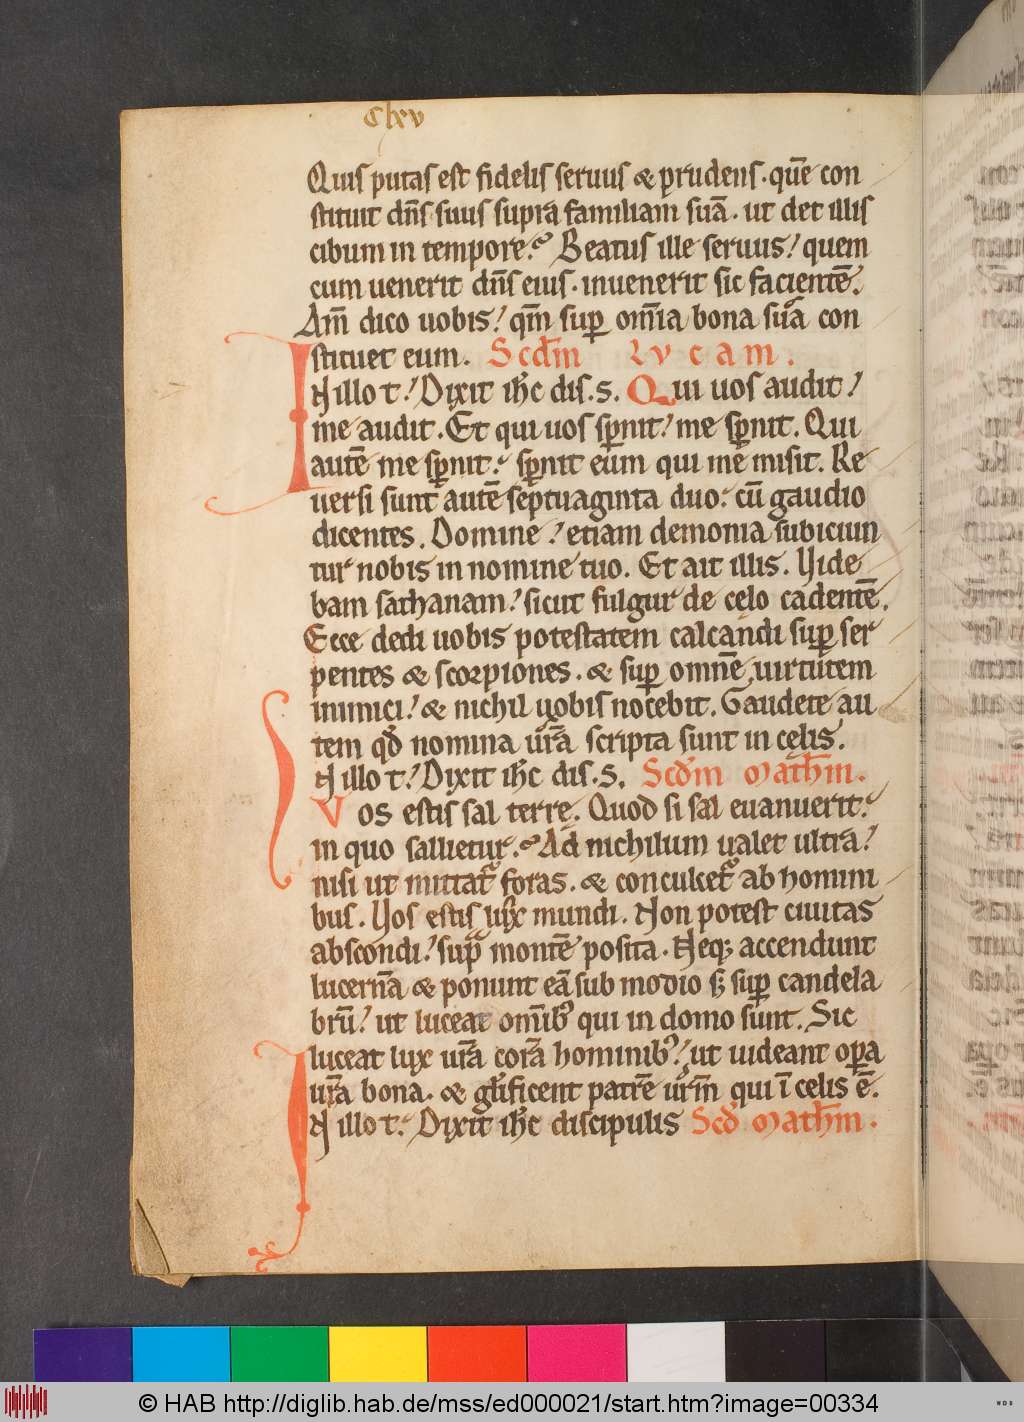 Clxv
Quis putas est fidelis seruus & prudens. quē con
stituit dn̄s suus supra familiam suā. ut det illis
cibum in tempore? Beatus ille seruus! quem
cum uenerit dn̄s eius. inuenerit sic facientē.
Am̄ dico uobis! qm̄ sup om̄ia bona sua con
stituet eum. Scdm Lvcam.
IN illo t! Dixit ih̄c dis. s. Qui uos audit!
me audit. Et qui uos sp̄nit! me sp̄nit. Qui
autē me sp̄nit. sp̄nit eum qui me misit. Re
uersi sunt autē septuaginta duo. cū gaudio
dicentes. Domine! etiam demonia subiciun
tur nobis in nomine tuo. Et ait illis. Vide
bam sathanam! sicut fulgur de celo cadentē.
Ecce dedi uobis potestatem calcandi sup ser
pentes & scorpiones. & sup omnē uirtutem
inimici! & nichil uobis nocebit. Gaudete au
tem qd̄ nomina ur̄a scripta sunt in celis.
IN illo t! Dixit ih̄c dis. s. Scdm Math̄m.
Vos estis sal terre. Quod si sal euanuerit.
in quo sallietur? Ad nichilum ualet ultra!
nisi ut mittatr foras. & conculcetr ab homini
bus. Vos estis lux mundi. Non potest ciuitas
abscondi! sup montē posita. Neq; accendunt
lucernā & ponunt eā sub modio s; sup candela
brū! ut luceat om̄ib; qui in domo sunt. Sic
luceat lux ur̄a cor̄a hominib;! ut uideant opa
ur̄a bona. & gl̄ificent patrē ur̄m qui ī celis ē.
IN illo t. Dixit ih̄c discipulis Scd Math̄m.
© HAB http://diglib.hab.de/mss/ed000021/start.htm?image=00334